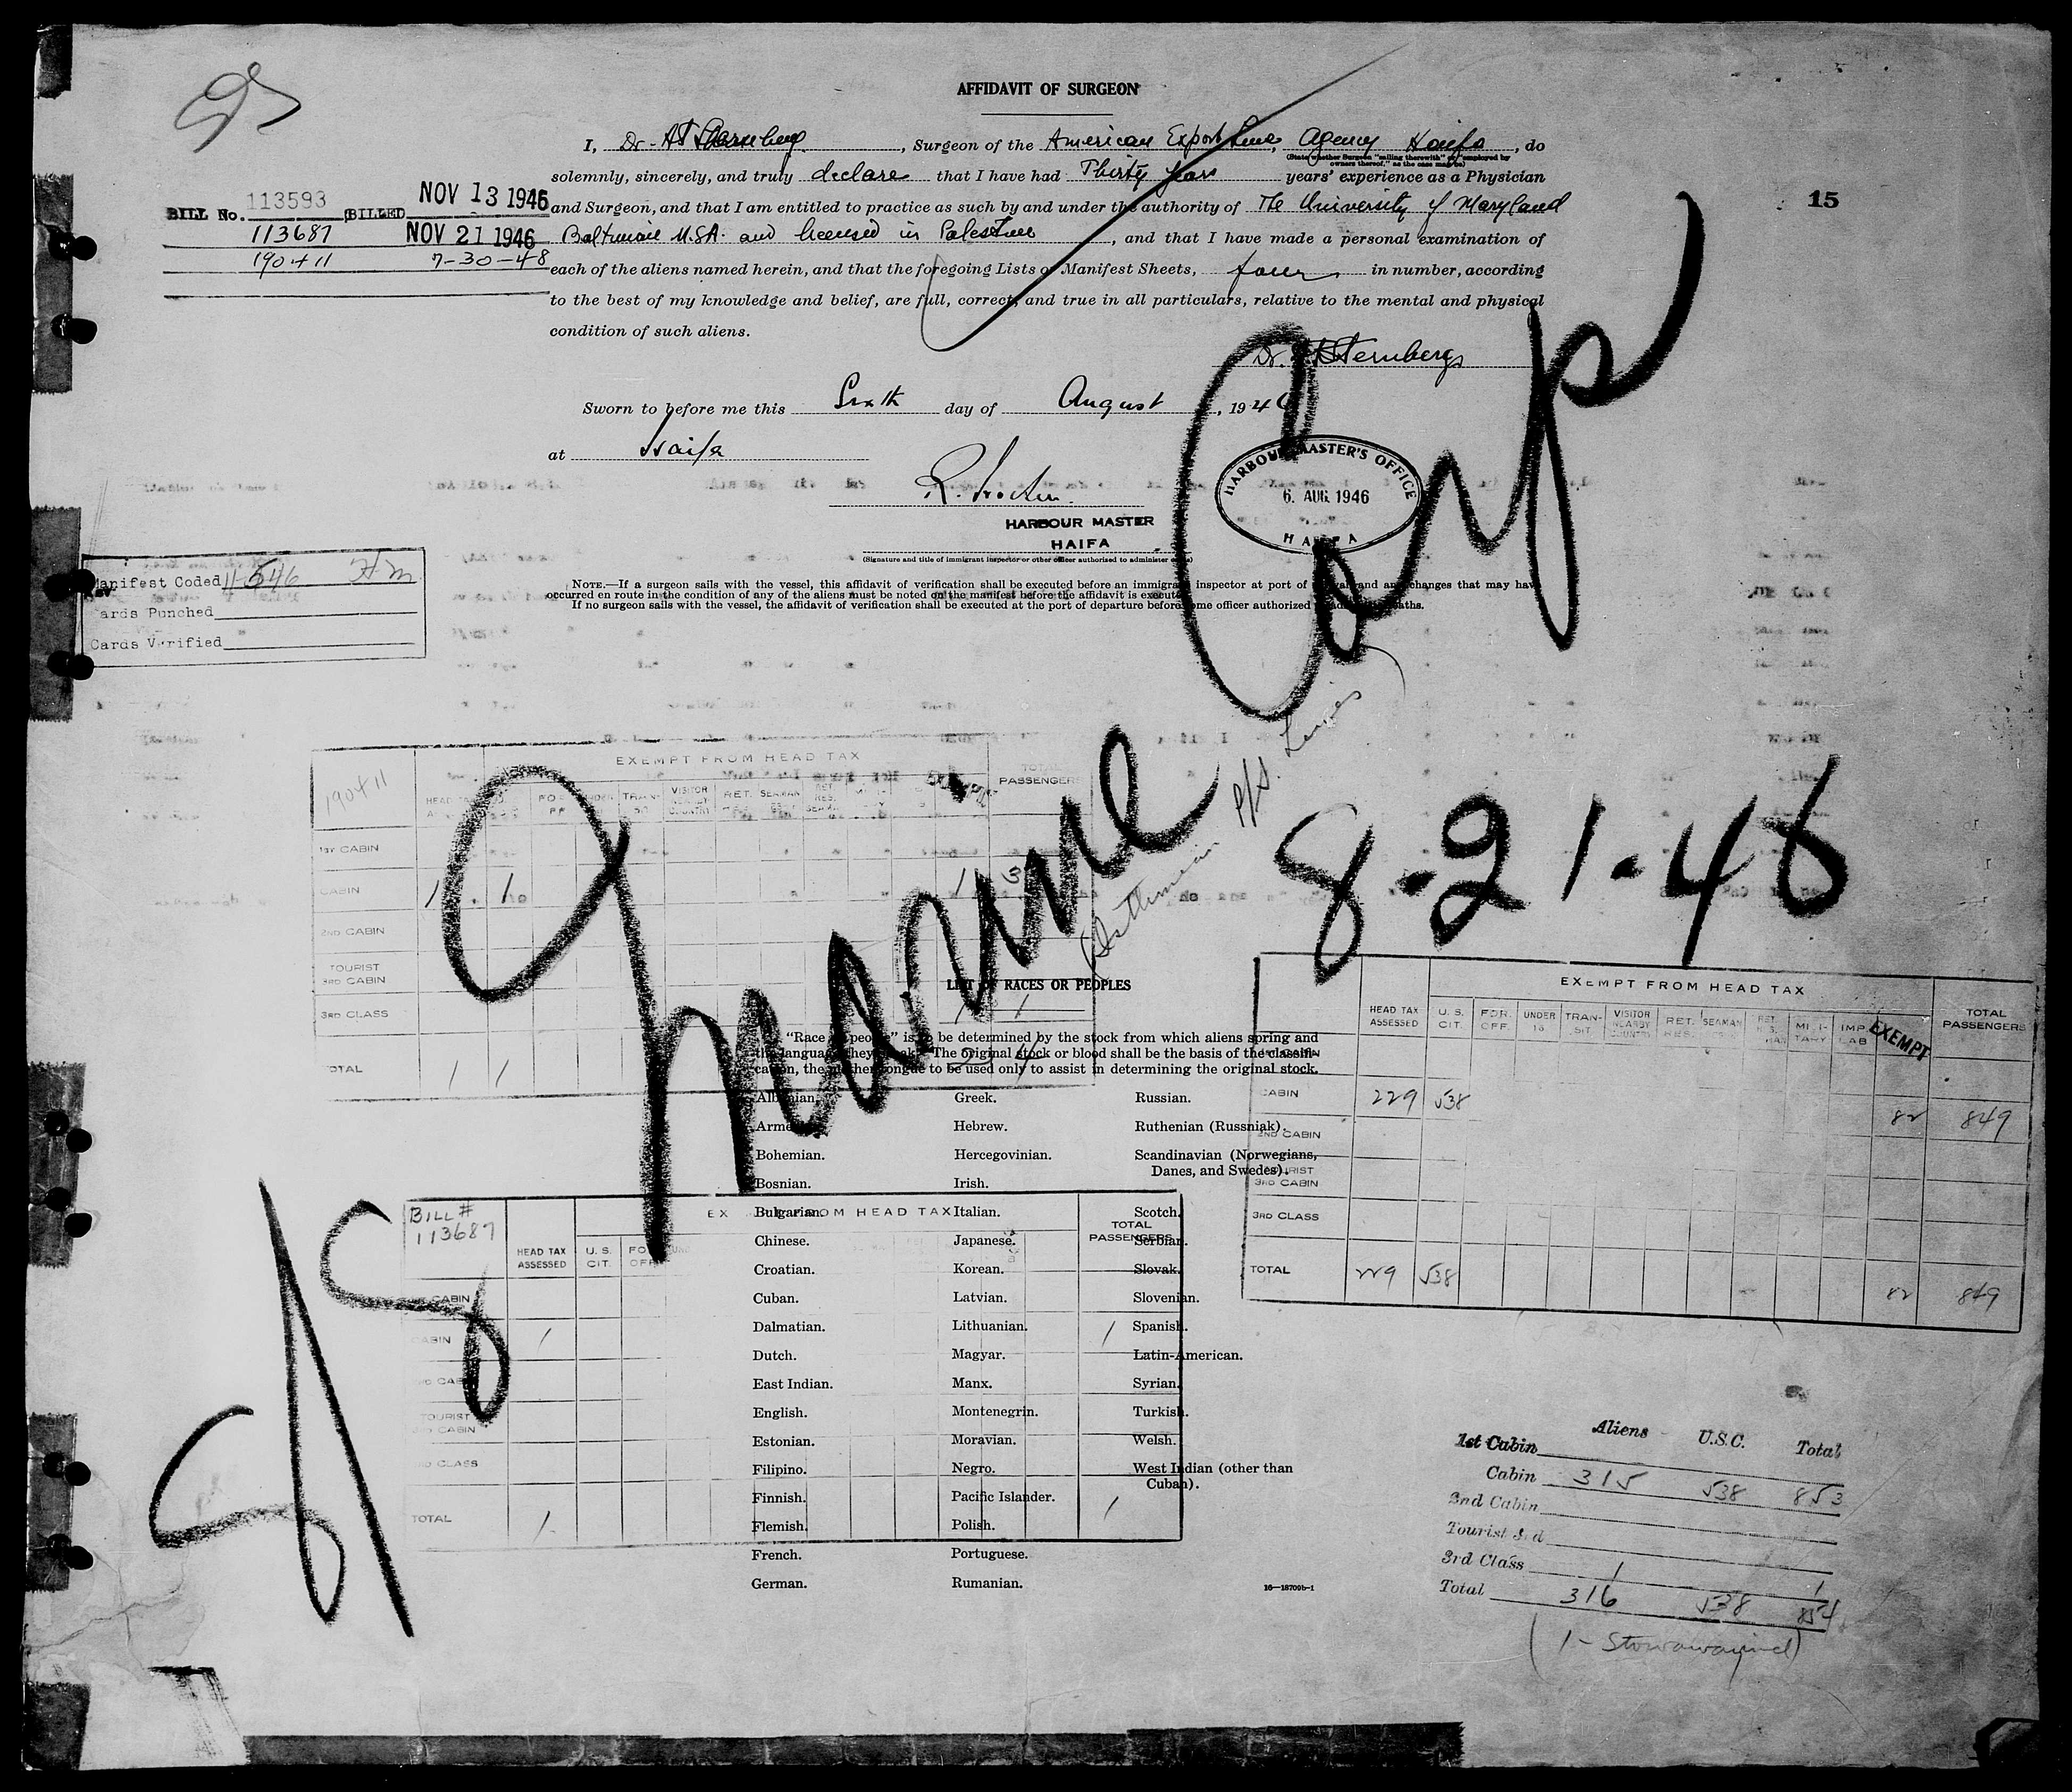 AFFIDAVIT OF SURGEON
I, Dr. Sternberg, Surgeon of the American Export Lines, Agency Haifa, do
(State whether Surgeon "sailing therewith" or "employed by owners thereof," as the case may be)
solemnly, sincerely, and truly declare that I have had Thirty years years' experience as a Physician
and Surgeon, and that I am entitled to practice as such by and under the authority of The University of Maryland
Baltimore U.S.A. and licensed in Palestine, and that I have made a personal examination of
each of the aliens named herein, and that the foregoing Lists or Manifest Sheets, four in number, according
to the best of my knowledge and belief, are full, correct, and true in all particulars, relative to the mental and physical
condition of such aliens.
15
BILL No. 113593 BILLED NOV 13 1946
113687 NOV 21 1946
190411 7-30-48
Dr. Sternberg
Sworn to before me this Sixth day of August, 1946
at Haifa
HARBOUR MASTER
HAIFA
(Signature and title of immigrant inspector or other officer authorized to administer oaths)
HARBOUR MASTER'S OFFICE
6. AUG. 1946
HAIFA
NOTE.—If a surgeon sails with the vessel, this affidavit of verification shall be executed before an immigrant inspector at port of arrival and any changes that may have
occurred en route in the condition of any of the aliens must be noted on the manifest before the affidavit is executed.
If no surgeon sails with the vessel, the affidavit of verification shall be executed at the port of departure before some officer authorized to administer oaths.
Manifest Coded 11-5-46
Cards Punched
Cards Verified
Marine Carp
8-21-46
190411
EXEMPT FROM HEAD TAX
TOTAL PASSENGERS
HEAD TAX
VISITOR NEARBY COUNTRY
RET.
SEAMAN
1ST CABIN
CABIN 1 1 1 3
2ND CABIN
TOURIST
3RD CABIN
3RD CLASS 1 1
TOTAL 1 1 2 4
LIST OF RACES OR PEOPLES
"Race or people" is to be determined by the stock from which aliens spring and
the language they speak. The original stock or blood shall be the basis of the classifi-
cation, the mother tongue to be used only to assist in determining the original stock.
Albanian. Greek. Russian.
Armenian. Hebrew. Ruthenian (Russniak).
Bohemian. Hercegovinian. Scandinavian (Norwegians,
Danes, and Swedes).
Bosnian. Irish.
Bulgarian. Italian. Scotch.
Chinese. Japanese. Serbian.
Croatian. Korean. Slovak.
Cuban. Latvian. Slovenian.
Dalmatian. Lithuanian. Spanish.
Dutch. Magyar. Latin-American.
East Indian. Manx. Syrian.
English. Montenegrin. Turkish.
Estonian. Moravian. Welsh.
Filipino. Negro. West Indian (other than
Cuban).
Finnish. Pacific Islander.
Flemish. Polish.
French. Portuguese.
German. Rumanian.
16—18709b-1
EXEMPT FROM HEAD TAX
HEAD TAX ASSESSED
U. S. CIT.
FOR. OFF.
UNDER 16
TRAN-SIT
VISITOR NEARBY COUNTRY
RET. RES.
SEAMAN
MILI-TARY
IMP LAB
EXEMPT
TOTAL PASSENGERS
CABIN 229 538 82 849
2ND CABIN
TOURIST
3RD CABIN
3RD CLASS
TOTAL 229 538 82 849
BILL #
113687
EXEMPT FROM HEAD TAX
TOTAL PASSENGERS
HEAD TAX ASSESSED
U. S. CIT.
FOR. OFF.
CABIN
CABIN 1 1
TOURIST
3RD CABIN
3RD CLASS
TOTAL 1 1
Aliens U.S.C. Total
1st Cabin
Cabin 315 538 853
2nd Cabin
Tourist 3rd
3rd Class 1 1
Total 316 538 854